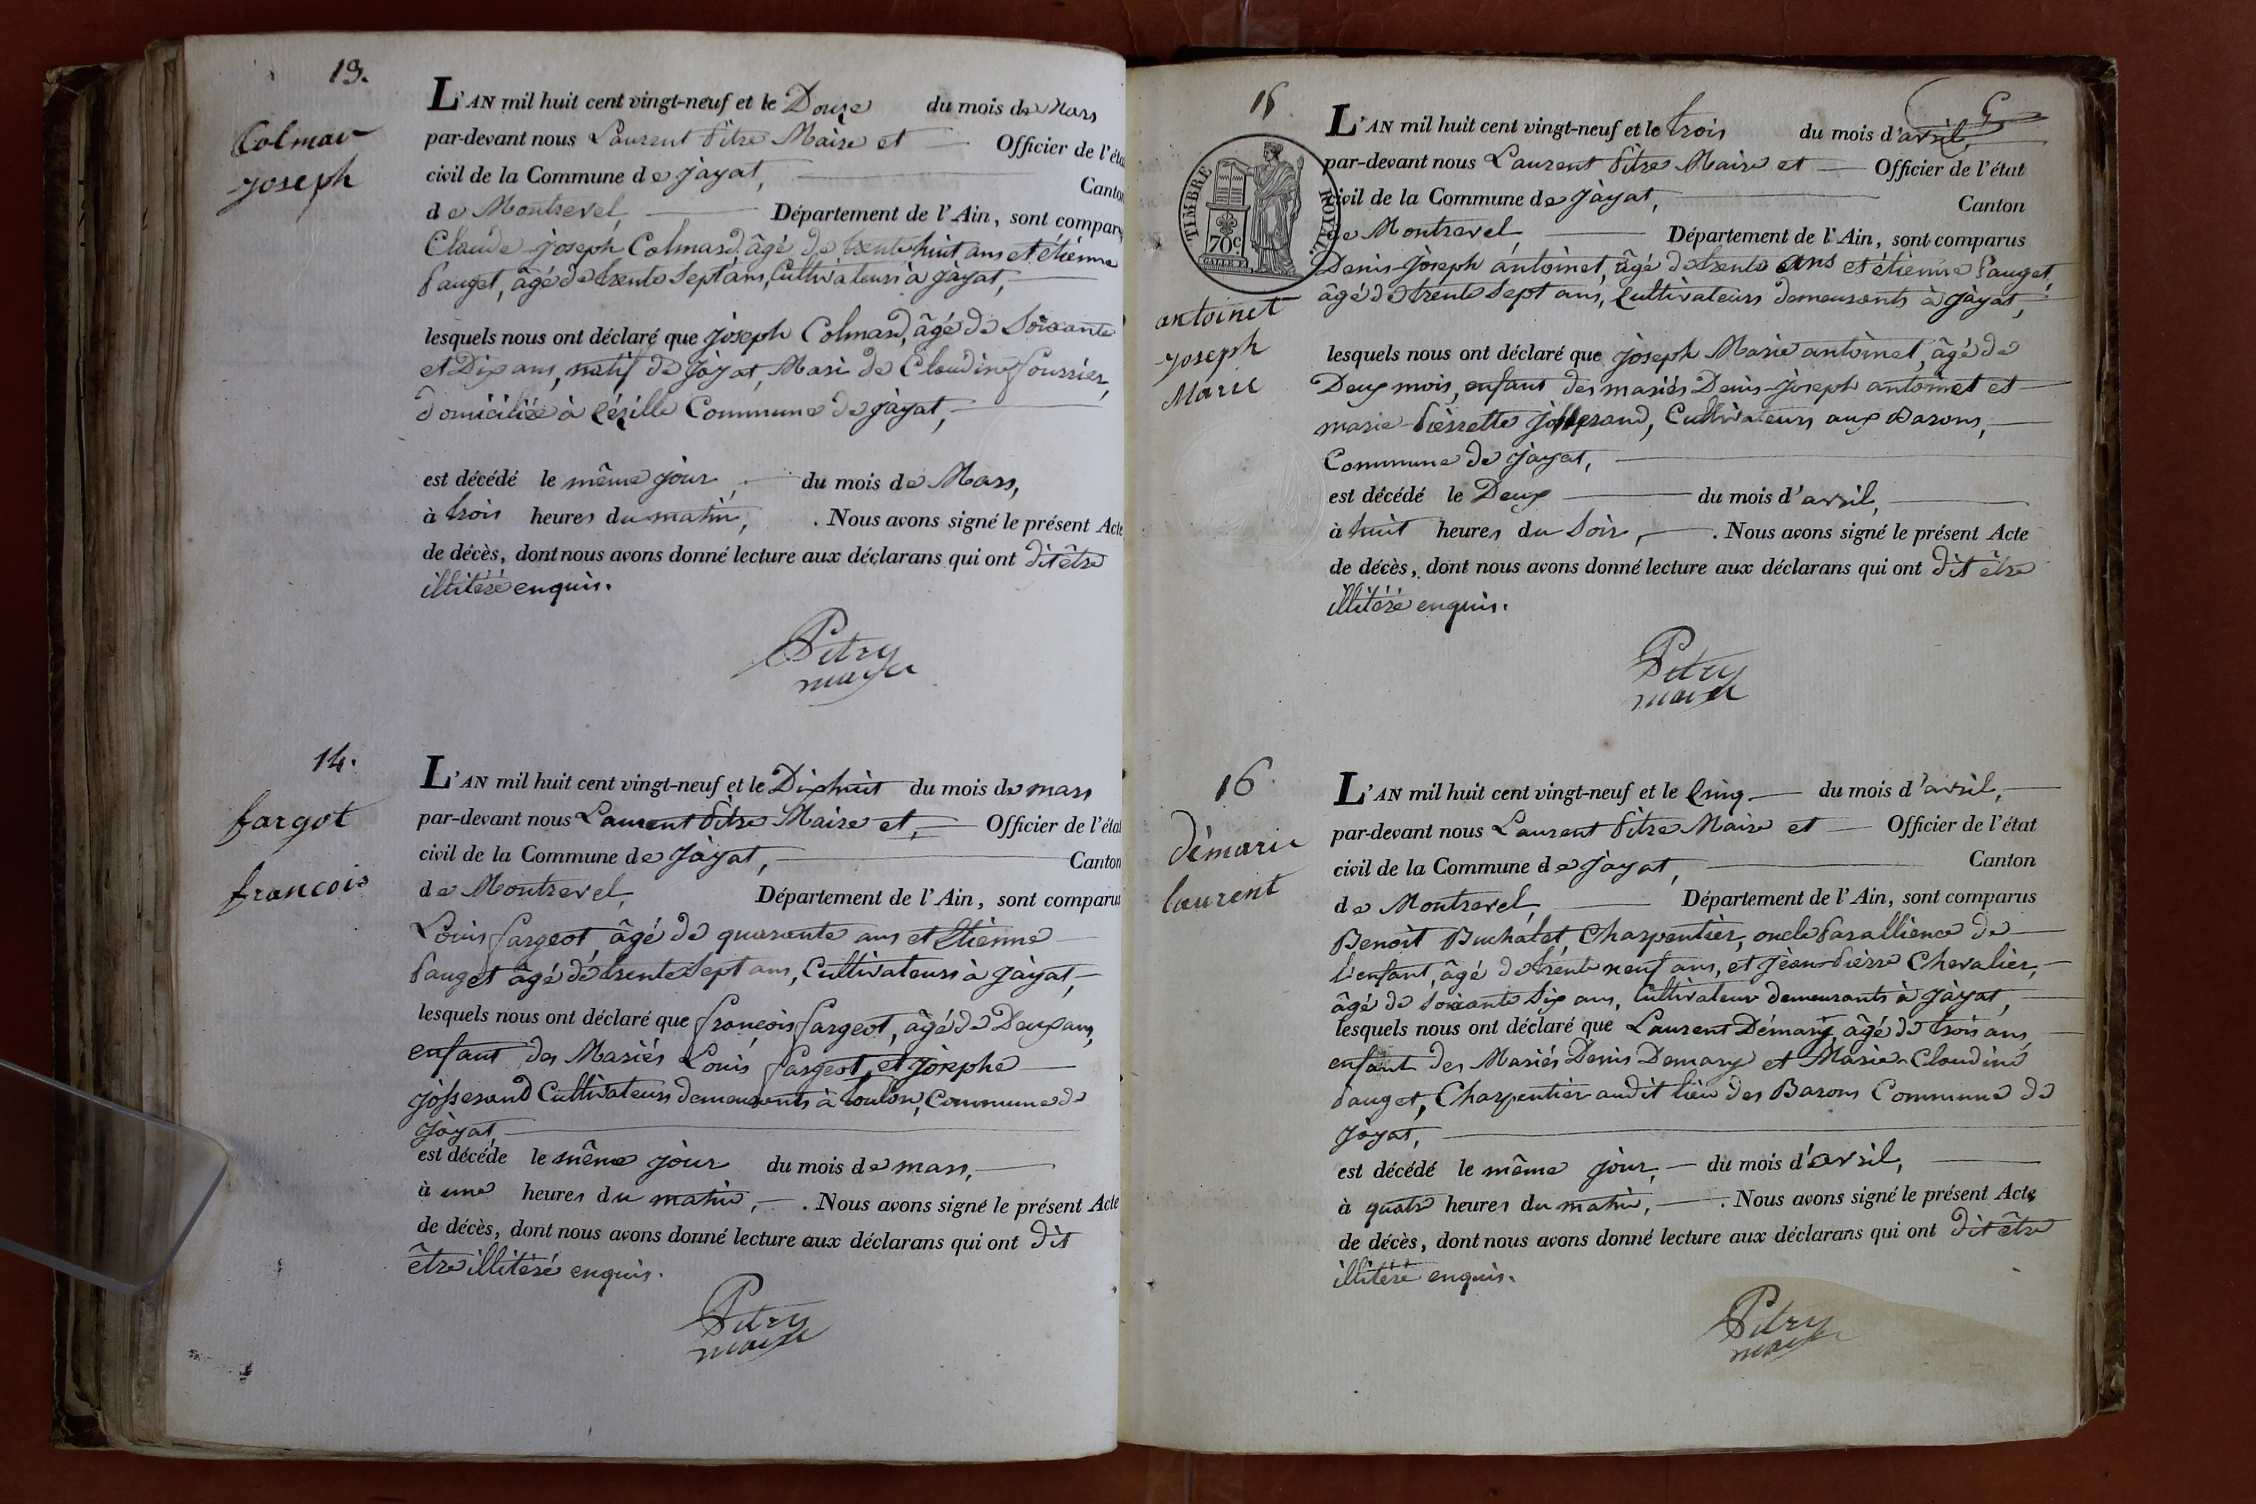 13.
Colmar
joseph
L'AN mil huit cent vingt-neuf et le Douze du mois de Mars
par-devant nous Laurent Pitre Maire et Officier de l'éta
civil de la Commune de jàyat, Canton
de Montrevel, Département de l'Ain, sont comparu
Claude joseph Colmard, âgé de trente huit ans et étienne
Pauget, âgé de trente Sept ans, Cultivateurs à jàyat,
lesquels nous ont déclaré que joseph Colmard, âgé de Soixante
et Dix ans, natif de jàyat, Mari de Claudine fourrier,
domiciliée à Cézille Commune de jàyat,
est décédé le même jour, du mois de Mars,
à trois heures du matin, . Nous avons signé le présent Acte
de décès, dont nous avons donné lecture aux déclarans qui ont dit être
illitéré enquis.
Pitry
maire
14.
fargot
francois
L'AN mil huit cent vingt-neuf et le Dixhuit du mois de mars
par-devant nous Laurent Pitre Maire et, Officier de l'état
civil de la Commune de jàyat, Canton
de Montrevel, Département de l'Ain, sont comparus
Louis fargeot, âgé de quarante ans et Etienne
Pauget âgé de trente Sept ans, Cultivateurs à jàyat,
lesquels nous ont déclaré que françois fargeot, âgé de Deux ans,
enfant des Mariés Louis fargeot, et josephe
josserand Cultivateurs demeurants à toulon, Commune de
jàyat,
est décédé le même jour du mois de mars,
à une heures du matin, . Nous avons signé le présent Acte
de décès, dont nous avons donné lecture aux déclarans qui ont dit
être illitéré enquis.
Pitry
maire
15
TIMBRE ROYAL
70c
antoinet
joseph
Marie
L'AN mil huit cent vingt-neuf et le trois du mois d'avril,
par-devant nous Laurent Pitre Maire et Officier de l'état
civil de la Commune de jàyat, Canton
de Montrevel, Département de l'Ain, sont comparus
Denis-joseph antoinet, âgé de trente ans et étienne Pauget,
âgé de trente Sept ans, Cultivateurs demeurants à jàyat,
lesquels nous ont déclaré que joseph Marie antoinet, âgé de
Deux mois, enfant des mariés Denis-joseph antoinet et
marie-Pierrette josserand, Cultivateurs aux Barons,
Commune de jàyat,
est décédé le Deux du mois d'avril,
à huit heures du Soir, . Nous avons signé le présent Acte
de décès, dont nous avons donné lecture aux déclarans qui ont dit être
illitéré enquis.
Pitry
maire
16
démarie
laurent
L'AN mil huit cent vingt-neuf et le Cinq du mois d'avril,
par-devant nous Laurent Pitre Maire et Officier de l'état
civil de la Commune de jàyat, Canton
de Montrevel, Département de l'Ain, sont comparus
Benoit Buchalet, Charpentier, oncle Par allience de
l'enfant, âgé de trente neuf ans, et jean-Pierre Chevalier,
âgé de Soixante Six ans, Cultivateur demeurants à jàyat,
lesquels nous ont déclaré que Laurent Démary, âgé de trois ans,
enfant des Mariés Denis Demary et Marie-Claudine
Pauget, Charpentier audit lieu des Barons Commune de
jàyat,
est décédé le même jour, du mois d'avril,
à quatre heures du matin, . Nous avons signé le présent Acte
de décès, dont nous avons donné lecture aux déclarans qui ont dit être
illitéré enquis.
Pitry
maire